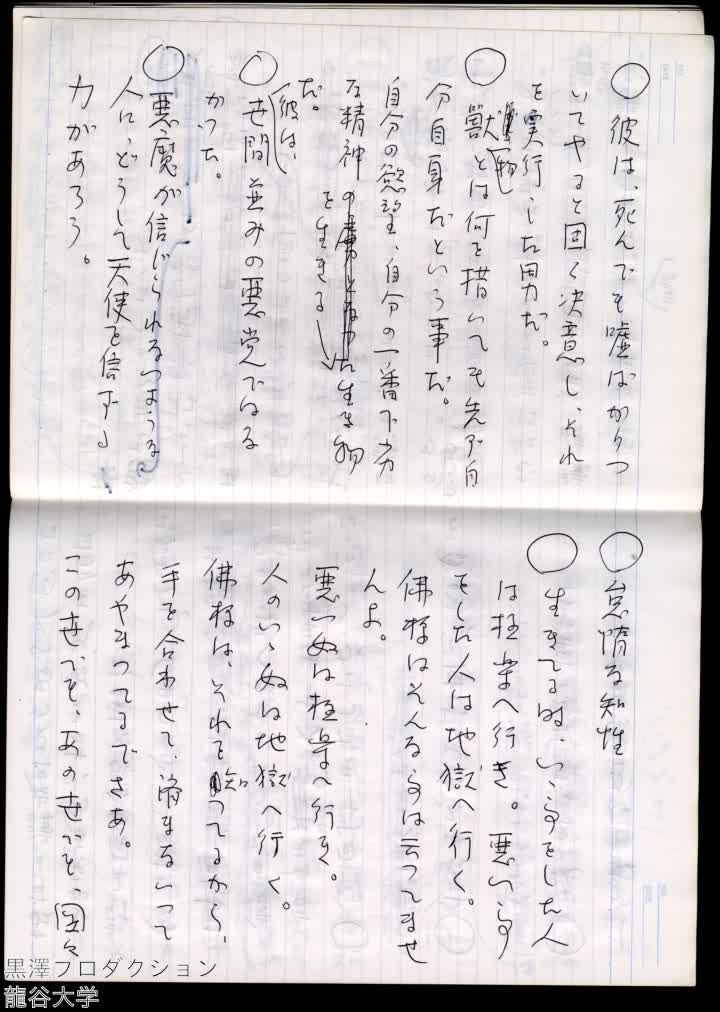 ○彼は、死んでも嘘ばかりつ
いてやると固く決意し、それ
を実行した男だ。
○獣物とは何を措いても先づ自
分自身だという事だ。
自分の慾望、自分の一番下劣
な精神を生きる生き物
だ。
○彼は、世間並みの悪党ではな
かった。
○悪魔が信じられないような
人に、どうして天使を信ずる
力があろう。
○怠惰な知性
○生きてる時、いゝ事をした人
は極楽へ行き。悪い事
をした人は地獄へ行く。
佛様はそんな事は云ってませ
んよ。
悪い奴は極楽へ行き。
人のいゝ奴は地獄へ行く。
佛様は、それを知ってるから、
手を合わせて、済まないって
あやまってるでさあ。
この世でも、あの世でも、
黒澤プロダクション
龍谷大学